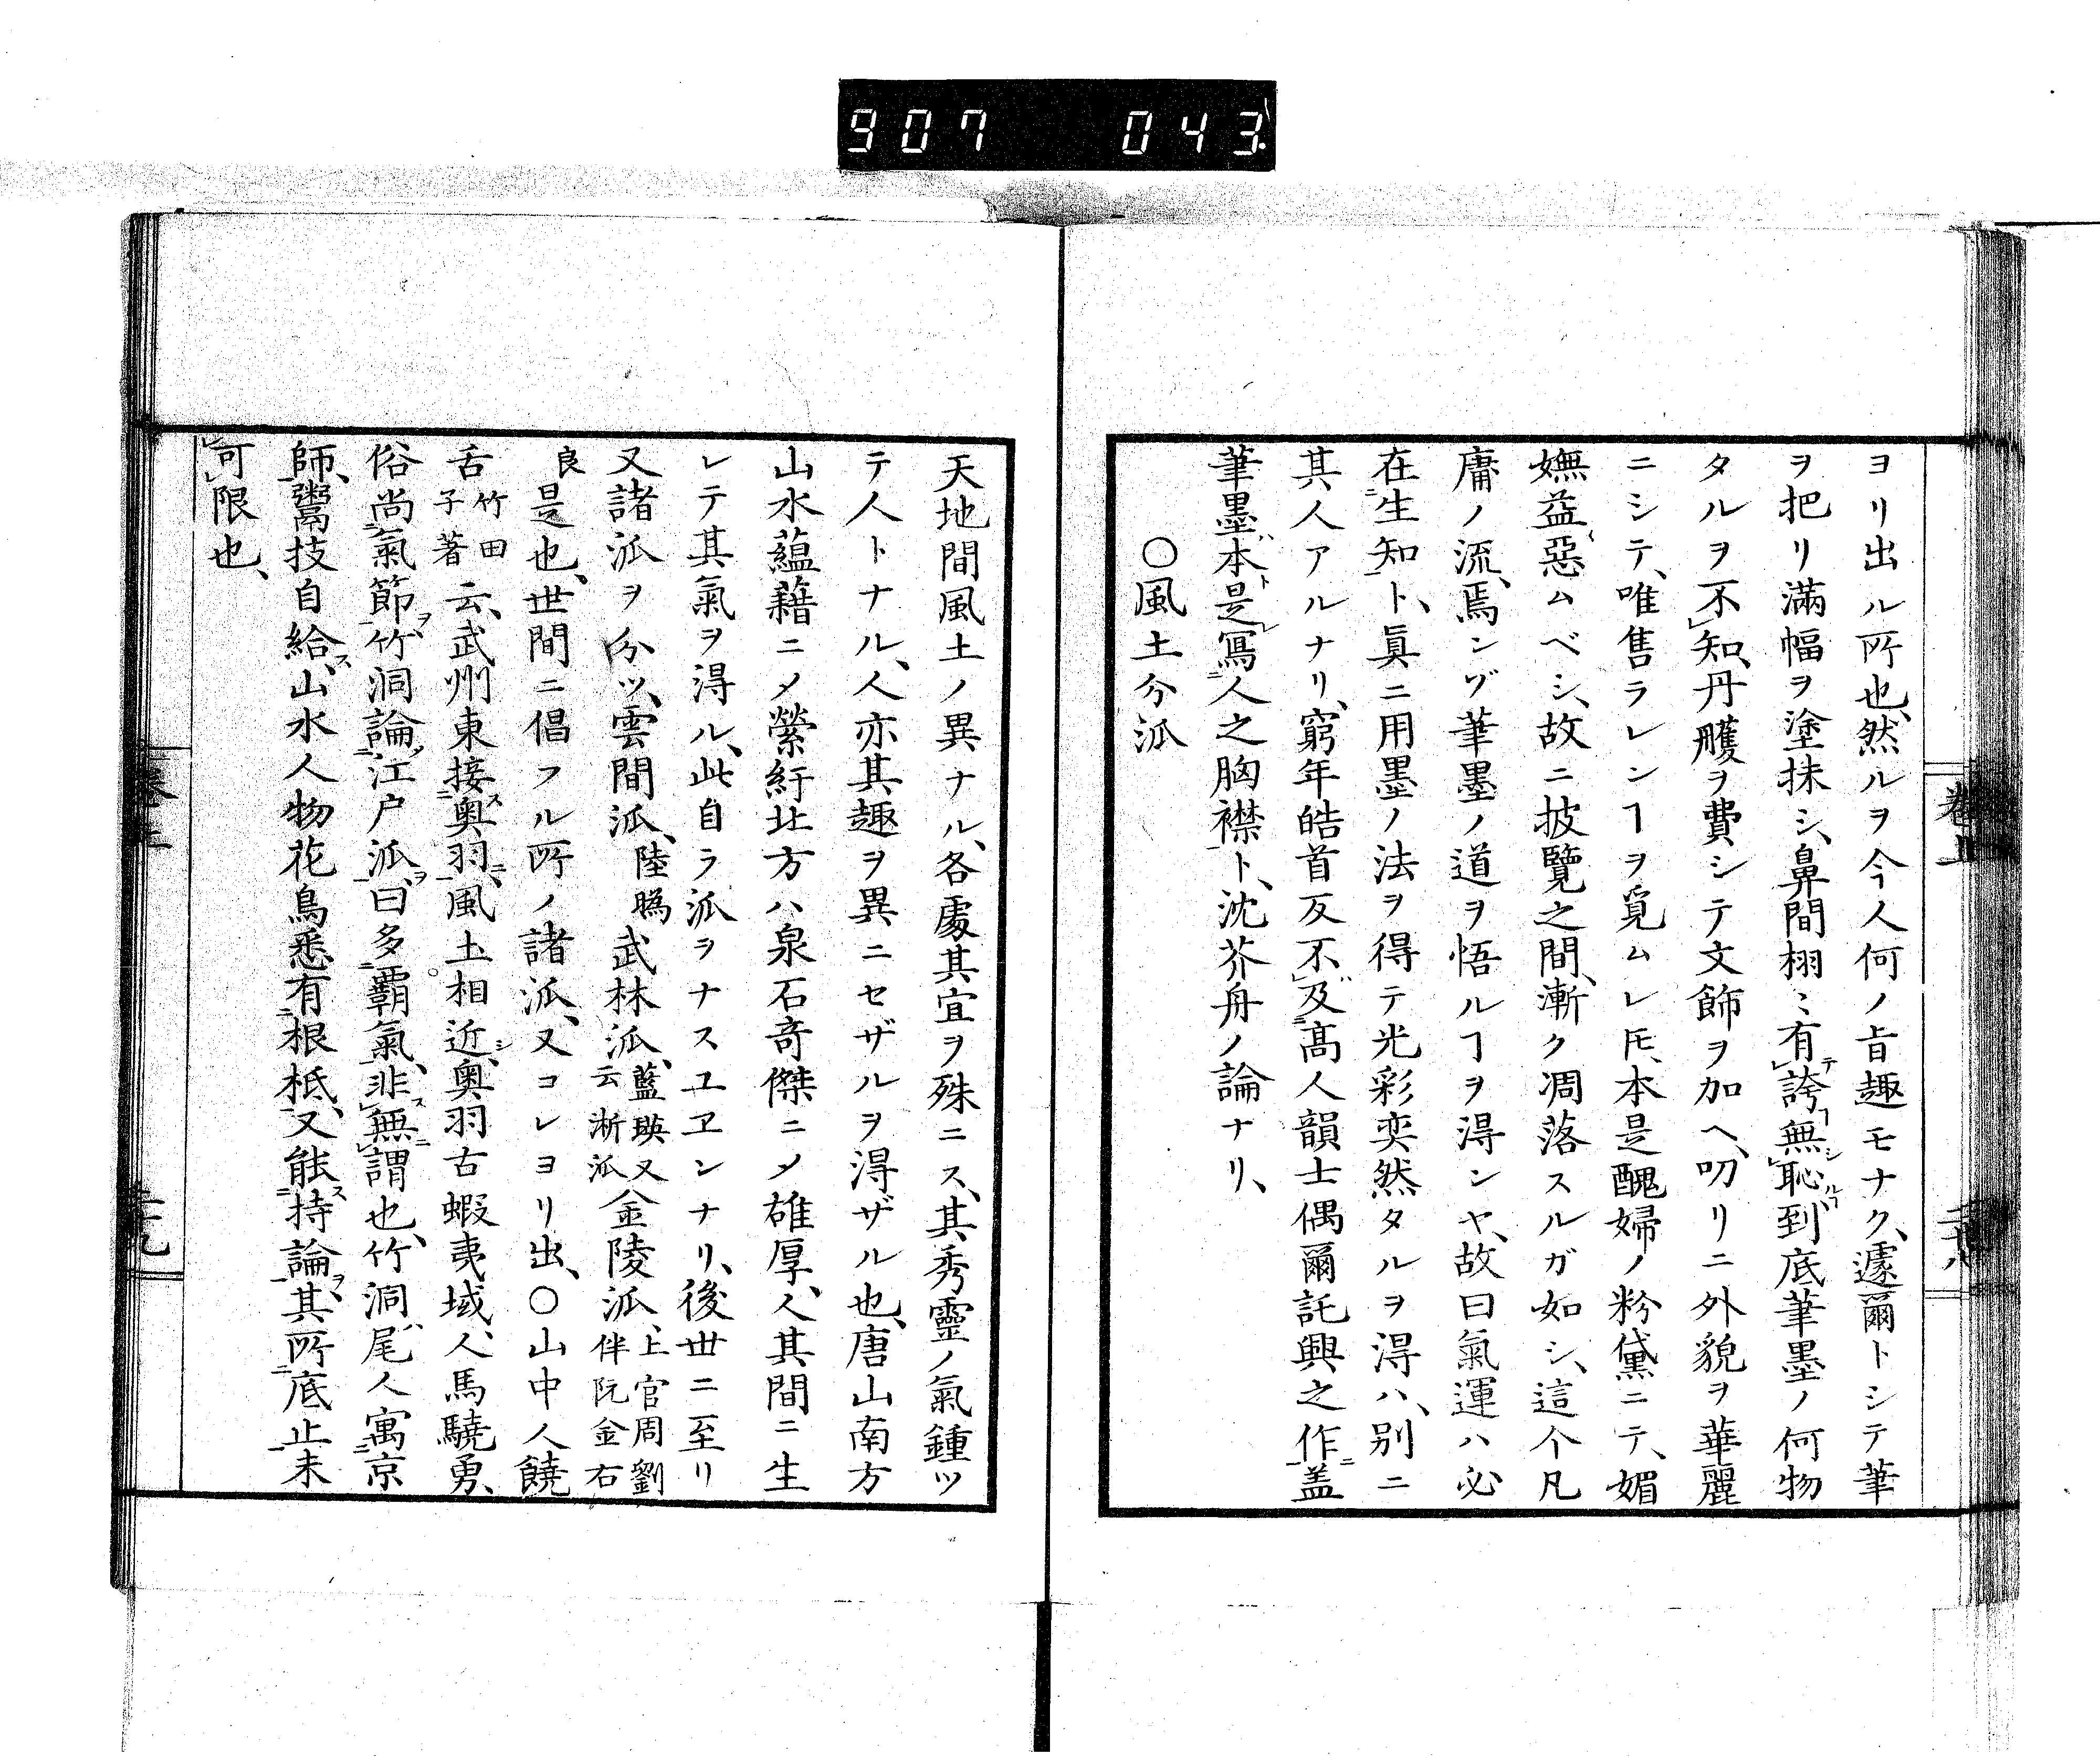 907 043
ヨリ出ル所也、然ルヲ今人何ノ旨趣モナク、遽爾トシテ筆
ヲ把リ滿幅ヲ塗抹シ、鼻間栩〻有誇無恥到底筆墨ノ何物
タルヲ不知、丹雘ヲ費シテ文飾ヲ加ヘ、叨リニ外貌ヲ華麗
ニシテ、唯售ラレンヿヲ覓ムレ𪜈、本是醜婦ノ粉黛ニテ、媚
嫵益惡ムベシ、故ニ披覽之間、漸ク凋落スルガ如シ、這个凡
庸ノ流、焉ンゾ筆墨ノ道ヲ悟ルヿヲ得ンヤ、故曰氣運ハ必
在生知ト、眞ニ用墨ノ法ヲ得テ光彩奕然タルヲ得ハ、別ニ
其人アルナリ、窮年皓首反不及高人韻士偶爾託興之作盖
筆墨本是寫人之胸襟ト、沈芥舟ノ論ナリ、
○風土分㳒
天地間風土ノ異ナル、各處其宜ヲ殊ニス、其秀靈ノ氣鍾ツ
テ人トナル、人亦其趣ヲ異ニセザルヲ得ザル也、唐山南方
山水蘊藉ニ〆縈紆北方ハ泉石奇傑ニ〆雄厚、人其間ニ生
レテ其氣ヲ得ル、此自ラ㳒ヲナスユヱンナリ、後世ニ至リ
又諸㳒ヲ分ツ、雲間㳒、陸暘武林㳒、藍瑛又云淅㳒金陵㳒、上官周劉伴阮金右
良是也、世間ニ倡フル所ノ諸㳒、又コレヨリ出、○山中人饒
舌竹田子著云、武州東接奥羽、風土相近、奥羽古蝦夷域、人馬驍勇、
俗尚氣節、竹洞論江户㳒、曰多覇氣、非無謂也、竹洞尾人寓京
師、鬻技自給、山水人物花鳥悉有根柢、又能持論、其所底止未
可限也、